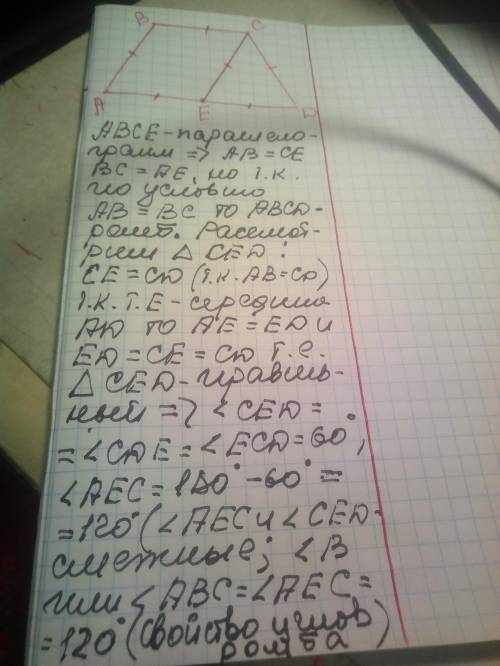 B C
A E D
ABCE - параллело-
грамм => AB = CE
BC = AE, но т.к.
по условию
AB = BC то ABCD-
ромб. Рассмот-
рим △ CED:
CE = CD (т.к. AB = CD)
т.к. т.E - середина
AD то AE = ED и
ED = CE = CD т.е.
△ CED - правиль-
ный => ∠CED =
= ∠CDE = ∠ECD = 60°,
∠AEC = 180° - 60° =
= 120° (∠AEC и ∠CED-
смежные; ∠B
или ∠ABC = ∠AEC =
= 120° (свойство углов
ромба)